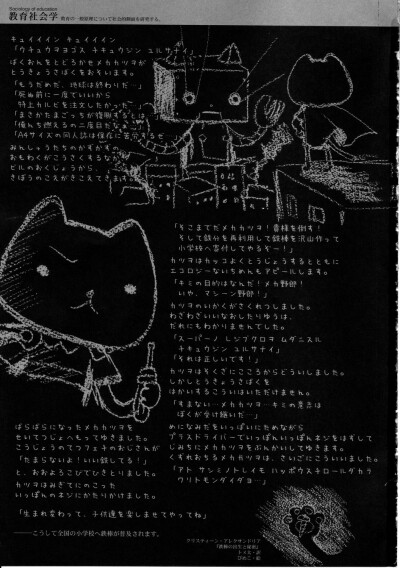 Sociology of education
教育社会学 教育の一般原理について社会的側面を研究する。
キュイイイン キュイイイン
「ウキュウヲヨゴス チキュウジン ユルサナイ」
ばくおんをとどろかせメカカツヲが
とうきょうさばくをおそいます。
「もうだめだ、地球は終わりだ…」
「死ぬ前に一度でいいから
特上カルビを注文したかった…」
「まさかたまごっちが復興するとは」
「俺んち燃えるの二度目だなぁ」
「A4サイズの同人誌は保存に苦労するぜ」
みんしゅうたちのかずかずの
おもわくがこうさくするなか
ビルのおくじょうから、
きぼうのこえがきこえてきます。
「そこまでだメカカツヲ!貴様を倒す!
そして鉄分を再利用して鉄棒を沢山作って
小学校へ寄付してやるぞー!」
カツヲはカッコよくとうじょうするとともに
エコロジーないちめんもアピールします。
「キミの目的はなんだ!メカ野郎!
いや、マシーン野郎!」
カツヲのいかくがさくれつしました。
わざわざいいなおしたりゆうは、
だれにもわかりませんでした。
「スーパーノ レジブクロヲ ムダニスル
チキュウジン ユルサナイ」
「それは正しいです!」
カツヲはそくざにこころからどういしました。
しかしとうきょうさばくを
はかいするこういはいただけません。
「すまない…メカカツヲ…キミの意志は
ぼくが受け継いだ…」
めになみだをいっぱいにためながら
プラスドライバーでいっぽんいっぽんネジをはずして
じみちにメカカツヲをぶんかいしてゆきます。
くずれおちるメカカツヲは、さいごにこういいました。
「アト サンミノトレイモ ハッポウスチロールダカラ
ウリトモンダイダヨー」
ばらばらになったメカカツヲを
せいてつじょへもってゆきました。
こうじょうのてつフェチのおじさんが
「たまらないよ!いい鉄してる!」
と、おおよろこびでひきとりました。
カツヲはみぎてにのこった
いっぽんのネジにかたりかけました。
「生まれ変わって、子供達を楽しませてやってね」
――こうして全国の小学校へ鉄棒が普及されます。
クリスティーン・アレクサンドリア
『鉄棒の誕生と秘密』
トメ太・訳
ぴれこ・絵